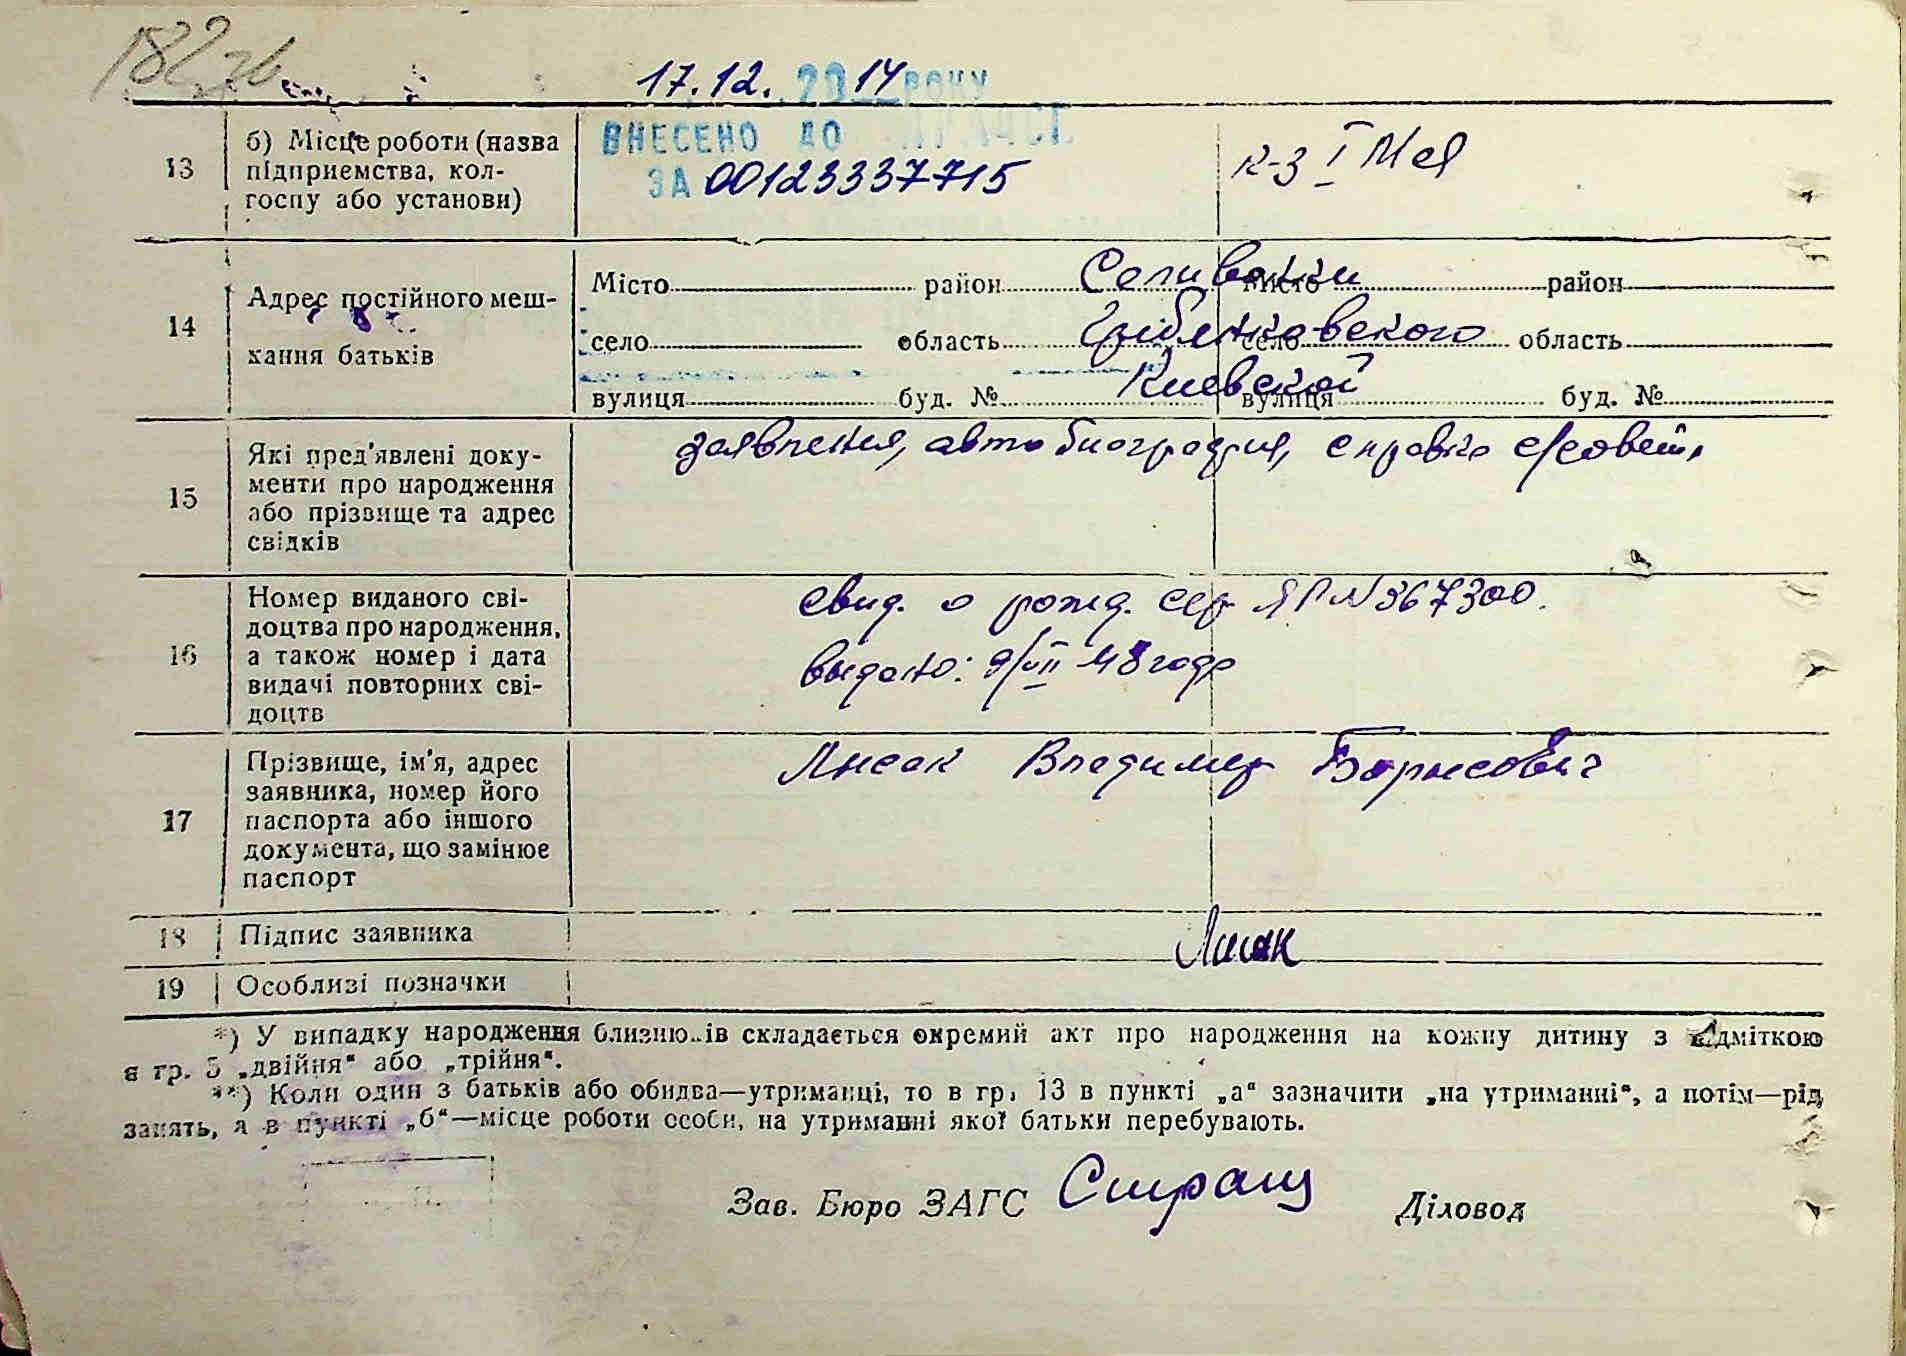 182 зв.
17.12. 2014 РОКУ
ВНЕСЕНО ДО ДРАЦСГ
ЗА 00123337715
13
б) Місце роботи (назва
підприємства, кол-
госпу або установи)
к-з I Мая
14
Адрес постійного меш-
кання батьків
Місто район Селиванки Місто район
село область Гребенковского село область
вулиця буд. № Киевской вулиця буд. №
15
Які пред'явлені доку-
менти про народження
або прізвище та адрес
свідків
заявления, автобиография, справка с/совета
16
Номер виданого сві-
доцтва про народження,
а також номер і дата
видачі повторних сві-
доцтв
свид. о рожд. сер ЯР №367300.
выдано: 9/VII 48 года
17
Прізвище, ім'я, адрес
заявника, номер його
паспорта або іншого
документа, що замінює
паспорт
Лысак Владимир Борисович
18
Підпис заявника
Лисак
19
Особливі позначки
*) У випадку народження близнюків складається окремий акт про народження на кожну дитину з відміткою
в гр. 5 „двійня“ або „трійня“.
**) Коли один з батьків або обидва—утриманці, то в гр. 13 в пункті „а“ зазначити „на утриманні“, а потім—рід
занять, а в пункті „б“—місце роботи особи, на утриманні якої батьки перебувають.
Зав. Бюро ЗАГС Страш Діловод